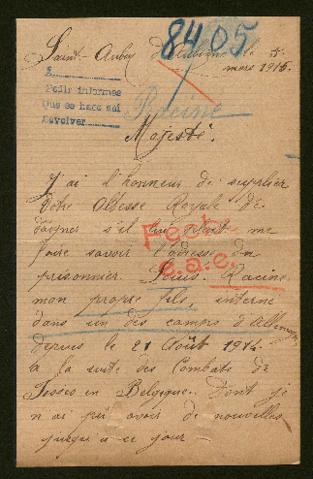 8405
Saint-Aubin d'Aubigné le 5
mars 1916.
Pedir informes
Que se hace así
devolver
Racine
Majesté.
J'ai l'honneur de supplier
Votre Altesse Royale de
daigner s'il lui plait me
faire savoir l'adresse du
prisonnier Louis Racine
mon propre fils, interné
dans un des camps d'Allemagne
depuis le 21 Août 1914
à la suite des Combats de
en Belgique. Dont je
n'ai pu avoir de nouvelles
jusqu'à ce jour
Fecha
c.a.c.